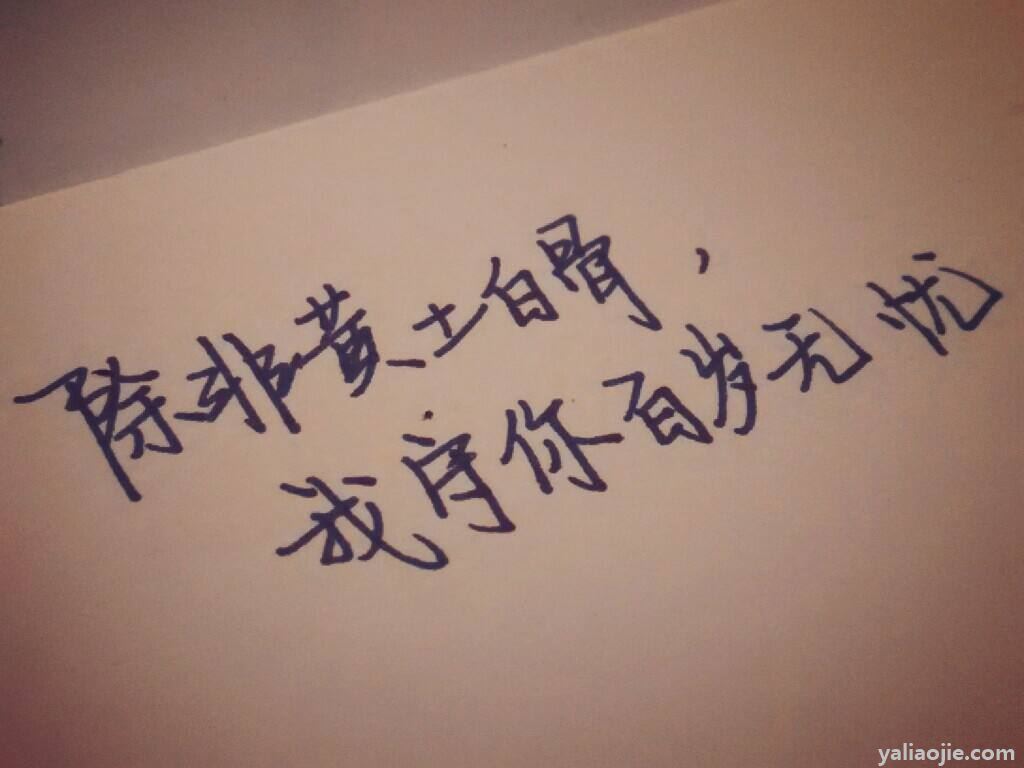 除非黄土白骨,
我守你百岁无忧
yaliaojie.com